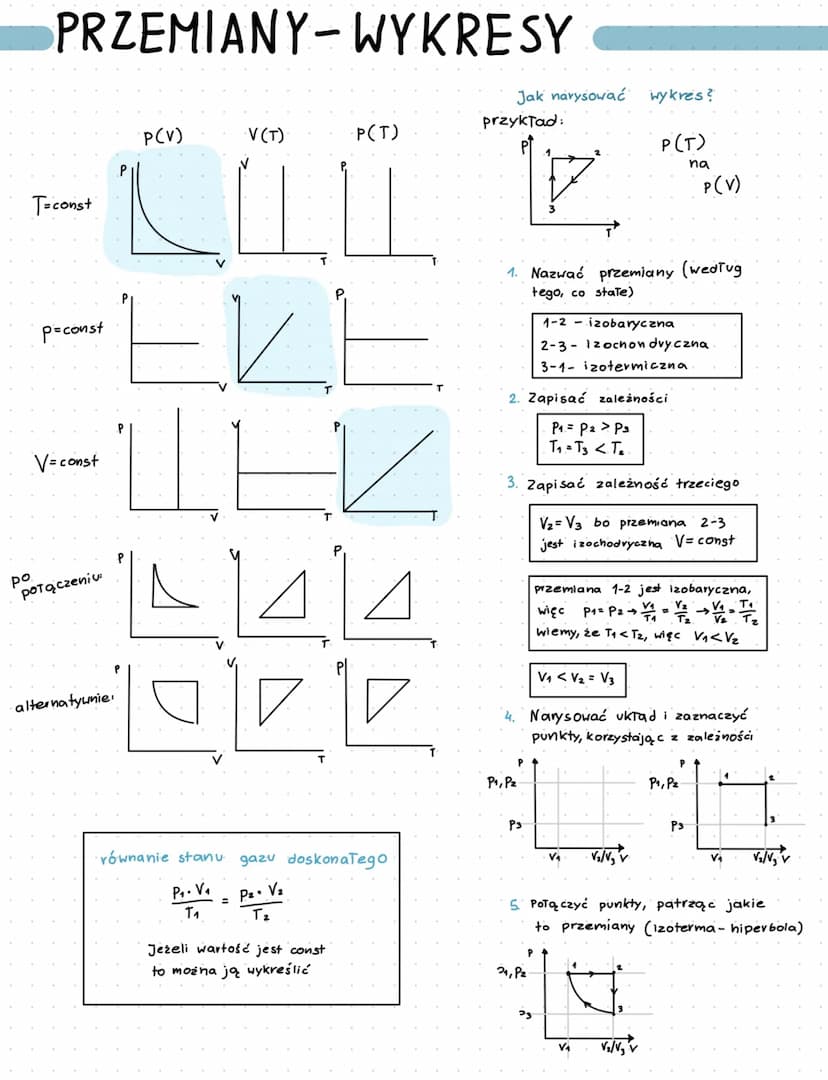 PRZEMIANY-WYKRESY
P(V) V(T) P(T)
T=const
P
V
V
T
P
T
p=const
P
V
V
T
P
T
V=const
P
V
V
T
P
T
po połączeniu
P
V
V
T
P
T
alternatywnie:
P
V
V
T
P
T
równanie stanu gazu doskonałego
P₁·V₁/T₁ = P₂·V₂/T₂
Jeżeli wartość jest const
to można ją wykreślić
Jak narysować wykres?
przykład:
P
1 2
3
T
P(T)
na
P(V)
1. Nazwać przemiany (według
tego, co stałe)
1-2 - izobaryczna
2-3 - izochondryczna
3-1- izotermiczna
2. Zapisać zależności
P₁ = P₂ > P₃
T₁ = T₃ < T₂
3. Zapisać zależność trzeciego
V₂=V₃ bo przemiana 2-3
jest izochodryczną V=const
przemiana 1-2 jest izobaryczna,
więc p₁=p₂→ V₁/T₁ = V₂/T₂ → V₁/V₂ = T₁/T₂
wiemy, że T₁<T₂, więc V₁<V₂
V₁ < V₂ = V₃
4. Narysować układ i zaznaczyć
punkty, korzystając z zależności
P
P₁,P₂
P₃
V₁ V₂/V₃ V
P
P₁,P₂
1 2
P₃
3
V₁ V₂/V₃ V
5. Połączyć punkty, patrząc jakie
to przemiany (izoterma-hiperbola)
P
P₁,P₂
1 2
P₃
3
V₁ V₂/V₃ V